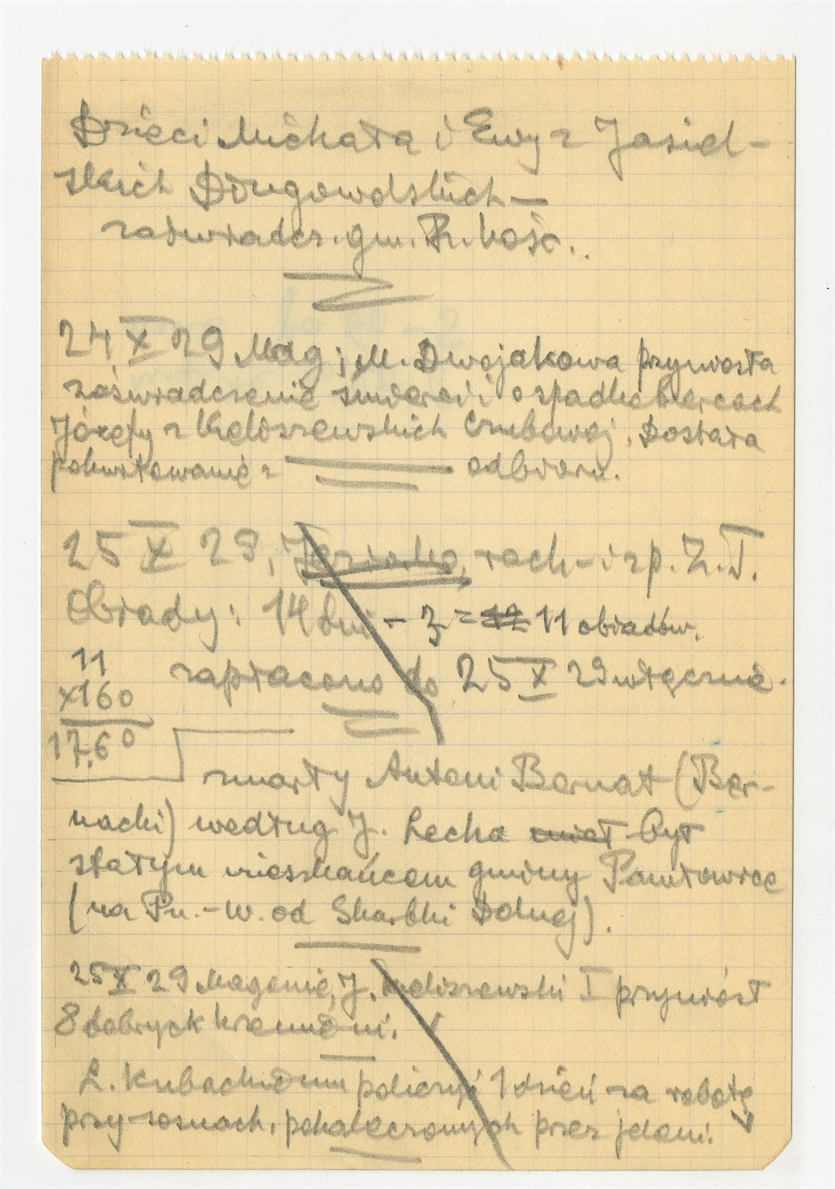 Dzieci Michała i Ewy z Jasiel-
skich Długowolskich —
zaświadcz. gm.
24 X 29 Mag; M. Dwojakowa przyniosła
zaświadczenie śmierci i o spadkobiercach
Józefy z Kieliszewskich Czubowej. Dostała
pokwitowanie z odbioru.
25 X 29, rach-i sp. Z.T.
Obiady: 14 dni - 3 = 12 11 obiadów.
11 zapłacono do 25 X 29 włącznie.
x160
17,60
zmarły Antoni Bernat (Ber-
nacki) według J. Lecha miał był
stałym mieszkańcem gminy Pawłowice
(na Pn.-W. od Skarbki Dolnej).
25 X 29 Magonie, J. Kieliszewski I przyniósł
8 dobrych krzemieni.
L. Kubackiemu policzyć 1 dzień za robotę
przy sosnach, pokaleczonych przez jeleni.